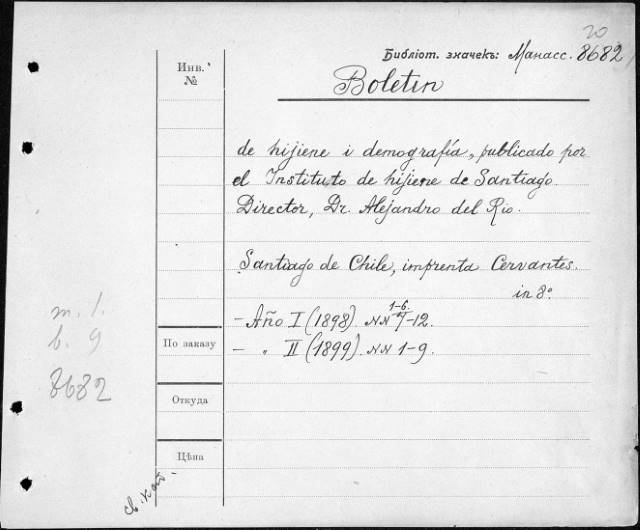 20
Библіот. значекъ: Манасс. 8682
Инв. №
Boletin
de hijiene i demografía, publicado por
el Instituto de hijiene de Santiago.
Director, Dr. Alejandro del Rio.
Santiago de Chile, imprenta Cervantes.
in 8º
1-6.
– Año I (1898). NN 7-12.
– „ II (1899). NN 1-9.
т. 1.
б. 9
8682
По заказу
Откуда
Цѣна